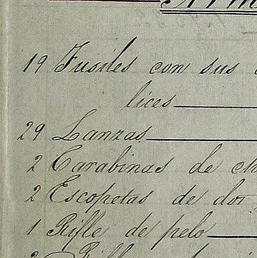 19 Fusiles con sus
lices
29 Lanzas
2 Carabinas de
2 Escopetas de dos
1 Rifle de pelo